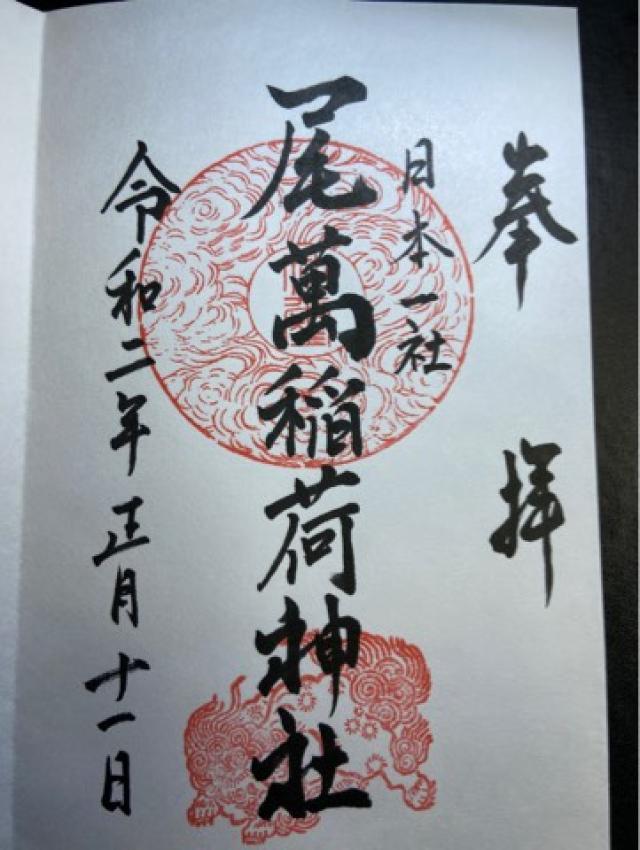 奉拝
日本一社
尾萬稲荷神社
令和二年正月十一日